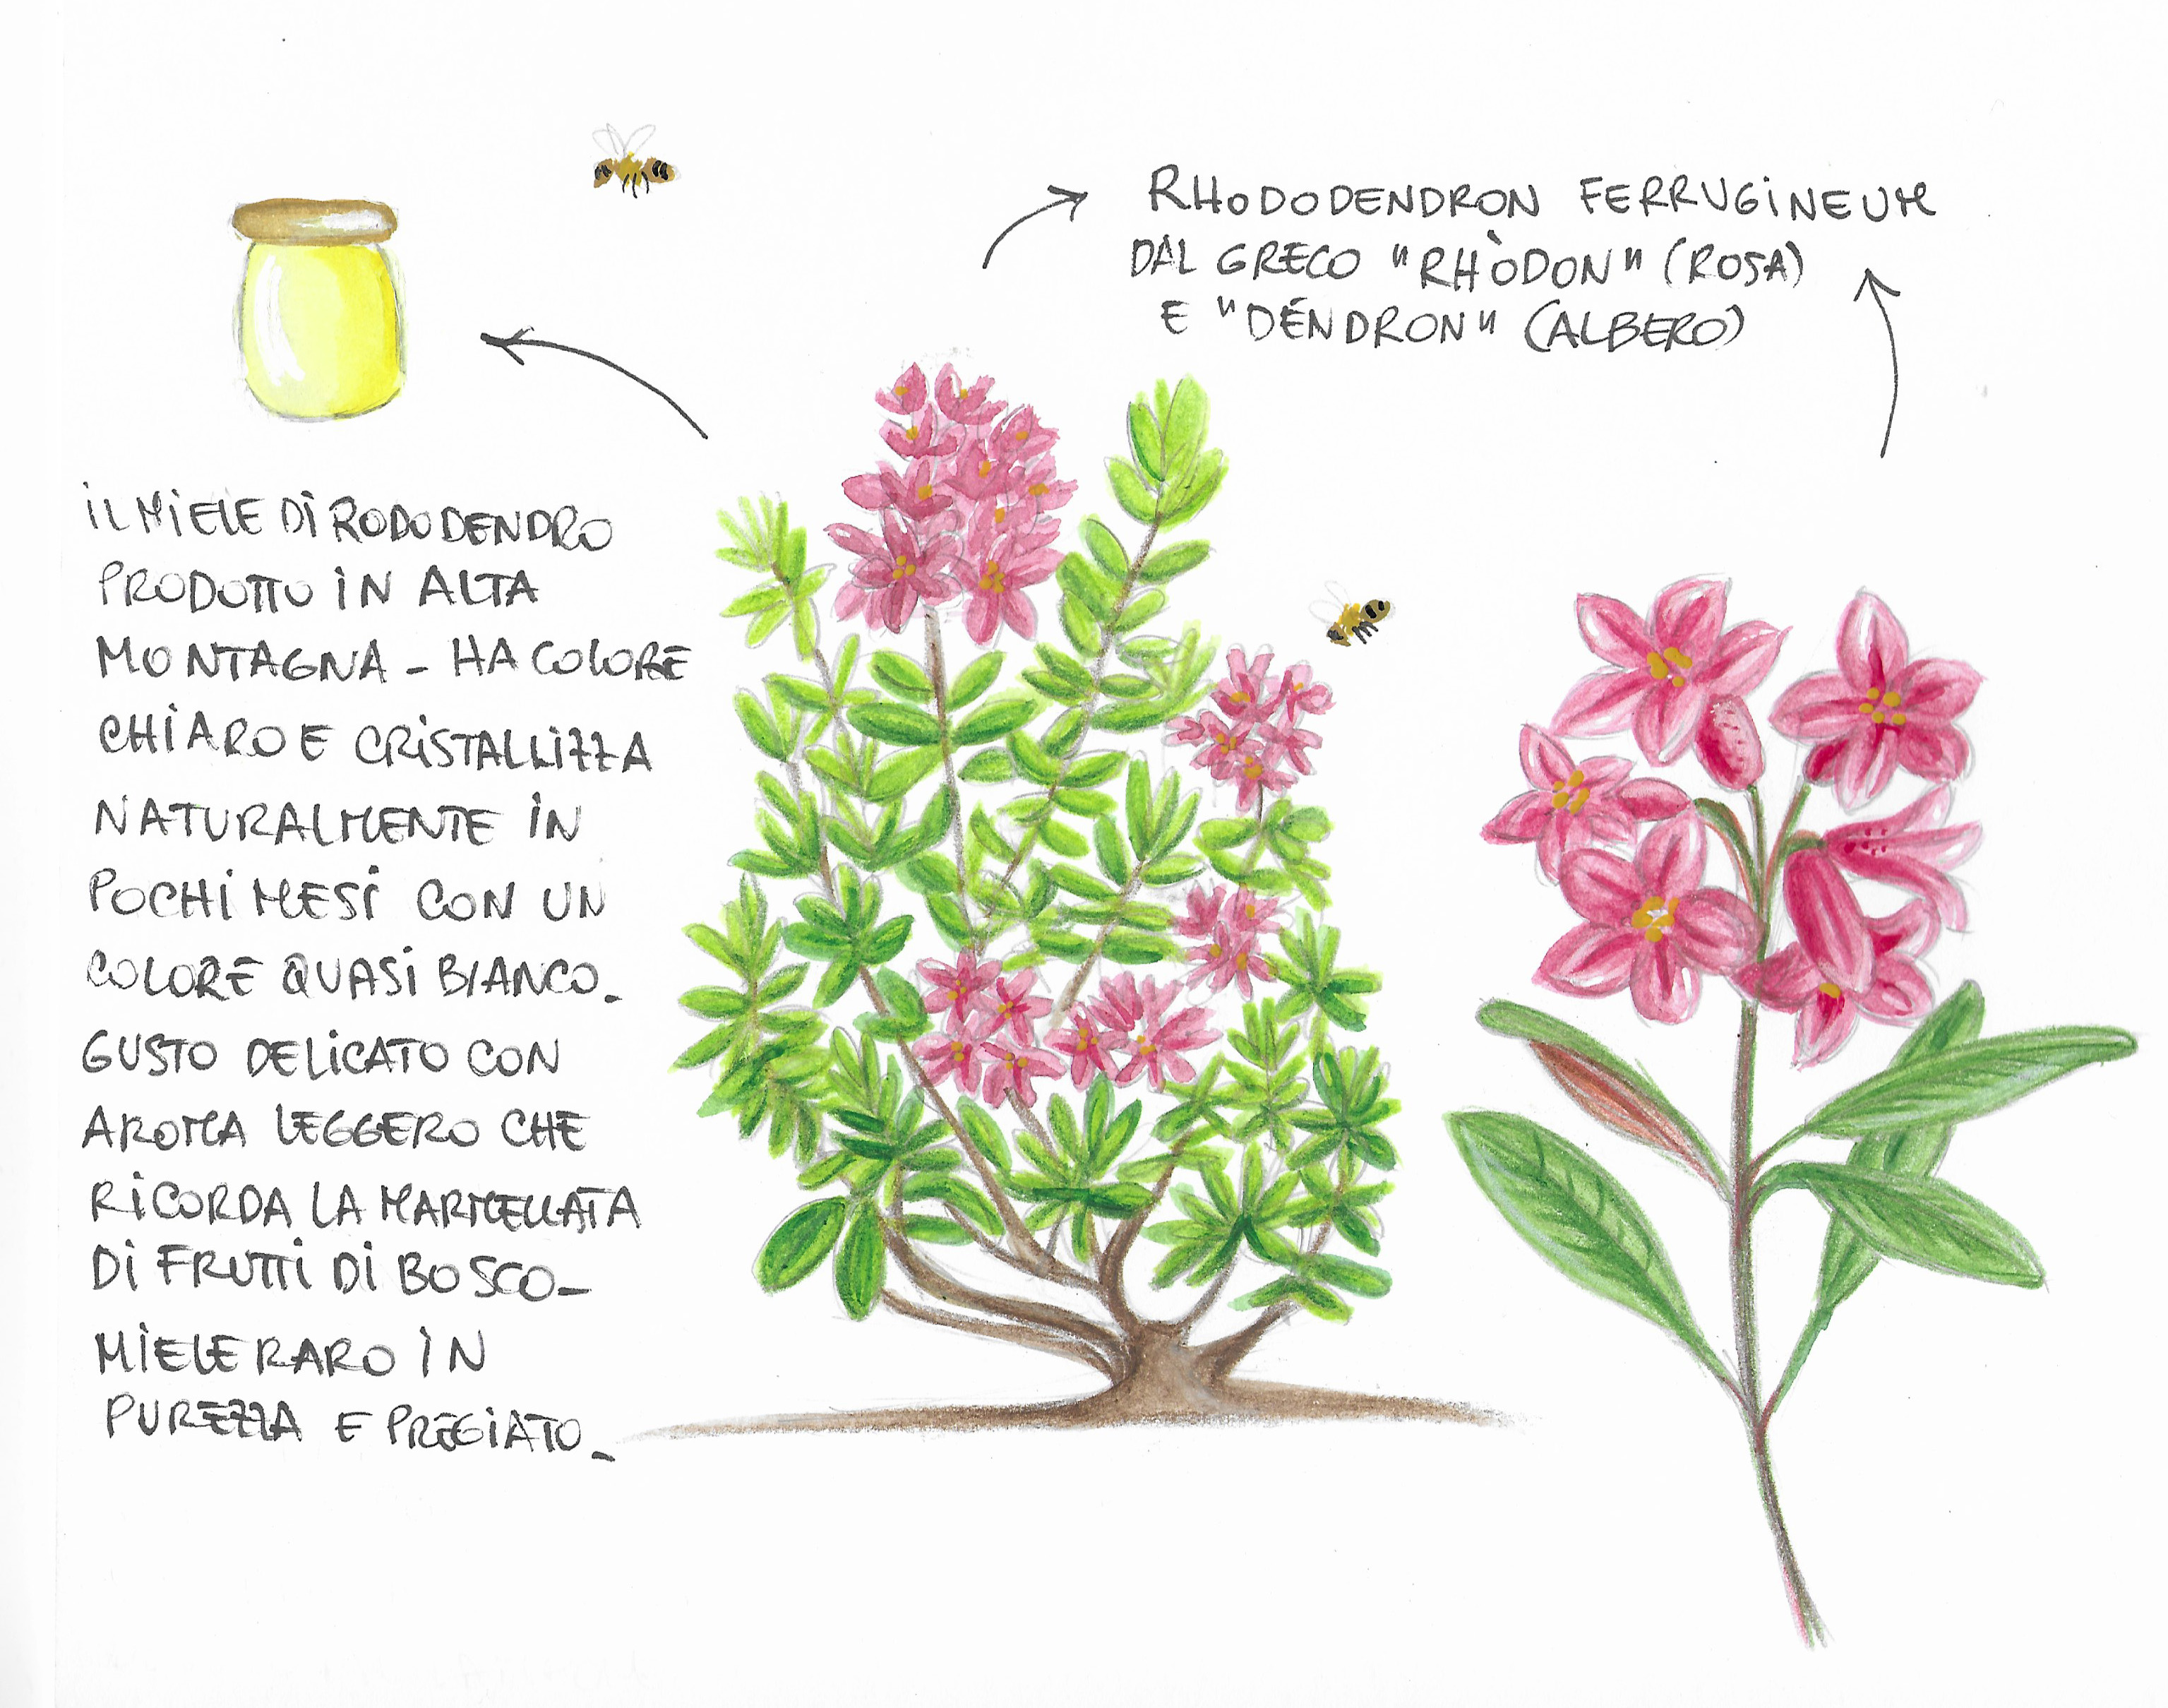 RHODODENDRON FERRUGINEUM
DAL GRECO "RHÒDON" (ROSA)
E "DÉNDRON" (ALBERO)
IL MIELE DI RODODENDRO
PRODOTTO IN ALTA
MONTAGNA - HA COLORE
CHIARO E CRISTALLIZZA
NATURALMENTE IN
POCHI MESI CON UN
COLORE QUASI BIANCO.
GUSTO DELICATO CON
AROMA LEGGERO CHE
RICORDA LA MARMELLATA
DI FRUTTI DI BOSCO-
MIELE RARO IN
PUREZZA E PREGIATO.